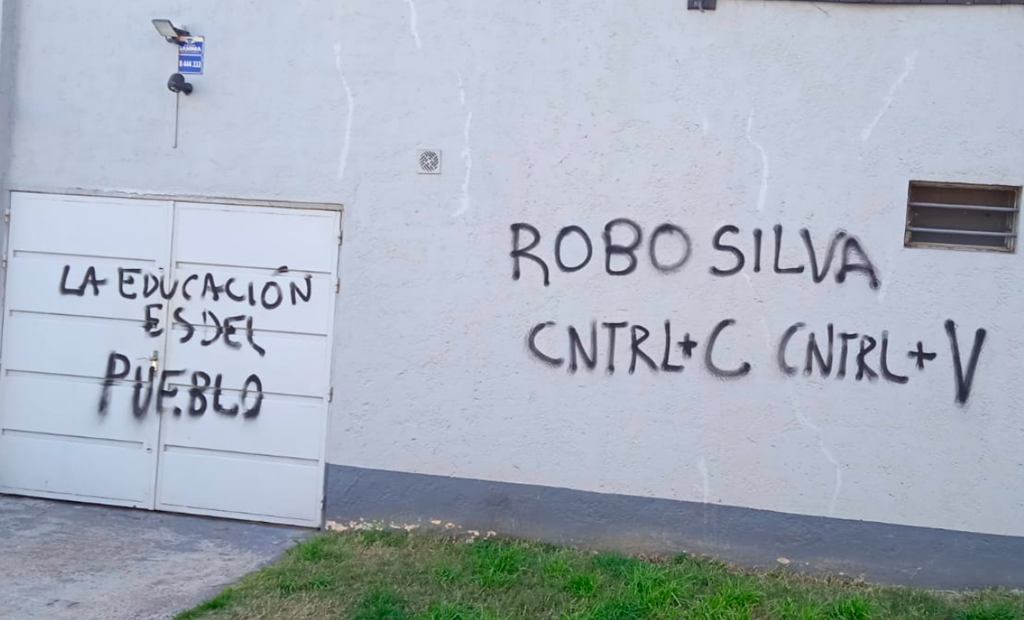 LA EDUCACIÓN
ES DEL
PUEBLO
ROBO SILVA
CNTRL+C CNTRL+V